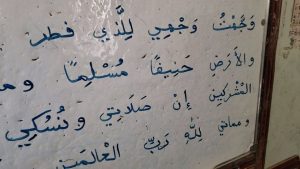 وَجَّهْتُ وَجْهِيَ لِلَّذِي فَطَرَ
وَالأَرْضَ حَنِيفًا مُسْلِمًا
الْمُشْرِكِينَ إِنَّ صَلَاتِي وَنُسُكِي
وَمَمَاتِي لِلَّهِ رَبِّ الْعَالَمِينَ